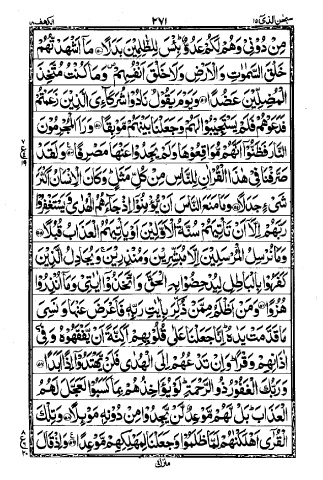 سبحن الذی ۱۵ ۲۷۱ الکھف ۱۸
مِنْ دُوْنِیْ وَهُمْ لَكُمْ عَدُوٌّ ؕ بِئْسَ لِلظّٰلِمِیْنَ بَدَلًا ۝ مَاۤ اَشْهَدْتُّهُمْ
خَلْقَ السَّمٰوٰتِ وَ الْاَرْضِ وَ لَا خَلْقَ اَنْفُسِهِمْ ۪ وَ مَا كُنْتُ مُتَّخِذَ
الْمُضِلِّیْنَ عَضُدًا ۝ وَ یَوْمَ یَقُوْلُ نَادُوْا شُرَكَآءِیَ الَّذِیْنَ زَعَمْتُمْ
فَدَعَوْهُمْ فَلَمْ یَسْتَجِیْبُوْا لَهُمْ وَ جَعَلْنَا بَیْنَهُمْ مَّوْبِقًا ۝ وَ رَاَ الْمُجْرِمُوْنَ
النَّارَ فَظَنُّوْۤا اَنَّهُمْ مُّوَاقِعُوْهَا وَ لَمْ یَجِدُوْا عَنْهَا مَصْرِفًا ۝ وَ لَقَدْ
صَرَّفْنَا فِیْ هٰذَا الْقُرْاٰنِ لِلنَّاسِ مِنْ كُلِّ مَثَلٍ ؕ وَ كَانَ الْاِنْسَانُ اَكْثَرَ
شَیْءٍ جَدَلًا ۝ وَ مَا مَنَعَ النَّاسَ اَنْ یُّؤْمِنُوْۤا اِذْ جَآءَهُمُ الْهُدٰی وَ یَسْتَغْفِرُوْا
رَبَّهُمْ اِلَّاۤ اَنْ تَاْتِیَهُمْ سُنَّةُ الْاَوَّلِیْنَ اَوْ یَاْتِیَهُمُ الْعَذَابُ قُبُلًا ۝
وَ مَا نُرْسِلُ الْمُرْسَلِیْنَ اِلَّا مُبَشِّرِیْنَ وَ مُنْذِرِیْنَ ۚ وَ یُجَادِلُ الَّذِیْنَ
كَفَرُوْا بِالْبَاطِلِ لِیُدْحِضُوْا بِهِ الْحَقَّ وَ اتَّخَذُوْۤا اٰیٰتِیْ وَ مَاۤ اُنْذِرُوْا
هُزُوًا ۝ وَ مَنْ اَظْلَمُ مِمَّنْ ذُكِّرَ بِاٰیٰتِ رَبِّهٖ فَاَعْرَضَ عَنْهَا وَ نَسِیَ
مَا قَدَّمَتْ یَدٰهُ ؕ اِنَّا جَعَلْنَا عَلٰی قُلُوْبِهِمْ اَكِنَّةً اَنْ یَّفْقَهُوْهُ وَ فِیْۤ
اٰذَانِهِمْ وَقْرًا ؕ وَ اِنْ تَدْعُهُمْ اِلَی الْهُدٰی فَلَنْ یَّهْتَدُوْۤا اِذًا اَبَدًا ۝
وَ رَبُّكَ الْغَفُوْرُ ذُو الرَّحْمَةِ ؕ لَوْ یُؤَاخِذُهُمْ بِمَا كَسَبُوْا لَعَجَّلَ لَهُمُ
الْعَذَابَ ؕ بَلْ لَّهُمْ مَّوْعِدٌ لَّنْ یَّجِدُوْا مِنْ دُوْنِهٖ مَوْىِٕلًا ۝ وَ تِلْكَ
الْقُرٰۤی اَهْلَكْنٰهُمْ لَمَّا ظَلَمُوْا وَ جَعَلْنَا لِمَهْلِكِهِمْ مَّوْعِدًا ۝ وَ اِذْ قَالَ